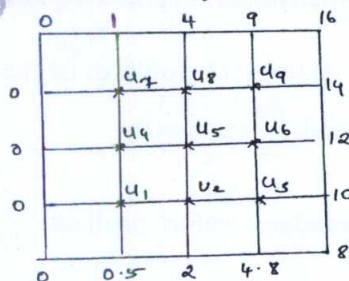 0 1 4 9 16
0 u7 u8 u9 14
0 u4 u5 u6 12
0 u1 u2 u3 10
0 0.5 2 4.8 8